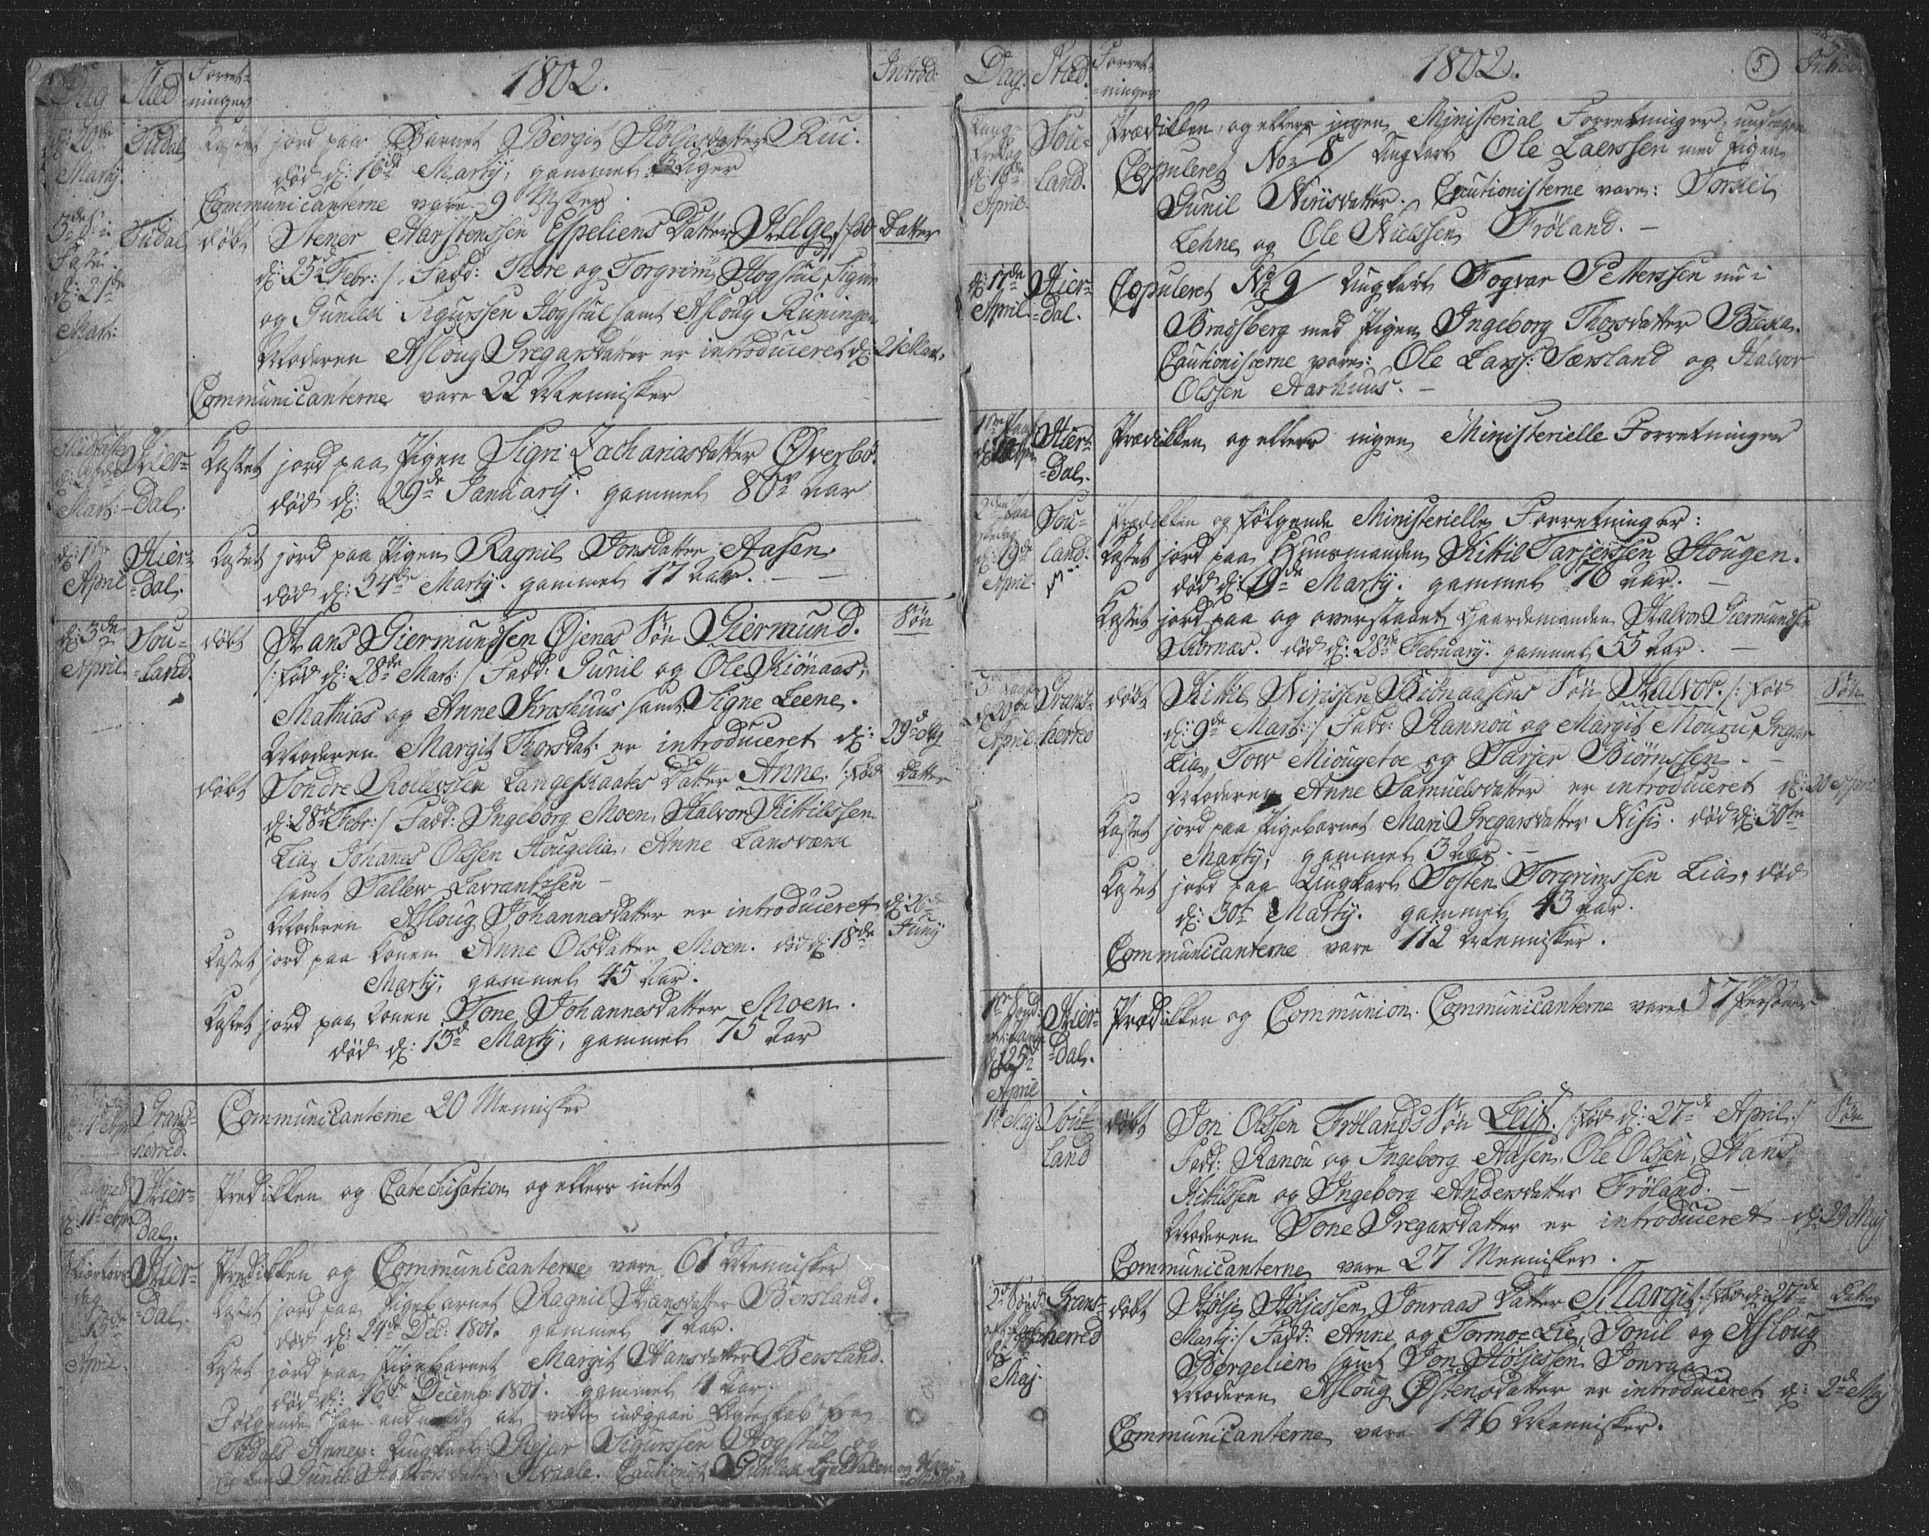 Dag Sted Forret-ninger 1802. Introd:
d: 20de Marty. Tudal Kastet jord paa Barnet Bergit Höljesdatter Rui.
død d: 16de Marty, gammel Uger
Communicanterne vare 9 Msker.
3de S: i Faste d: 21de Mart: Tudal døbt Stener Aarstenssen Espeliens Datter Helge /: fød Datter
d: 25de Febr: / Fadd: Thore og Torgrim Hogstul, Sigur
og Gunled Sigurssen Hogstul samt Asloug Runingen
Moderen Asloug Gregarsdatter er introduceret d: 21 Mart:
Communicanterne vare 22 Mennisker
Hier-Dal. Kastet jord paa Pigen Sigri Zachariasdatter Øverbö.
død d: 29de January. gammel 80 Aar
d: 1te April Hier-Dal. Kastet jord paa Pigen Ragnil Jonsdatter Aasen.
død d: 24de Marty. gammel 17 Aar.
d: 3de April Sou-land. døbt Hans Giermundsen Øjenes Søn Giermund. Søn
/: fød d: 28de Mart: / Fadd: Gunil og Ole Kiönaas,
Mathias og Anne Kroshuus samt Signe Leene.
Moderen Margit Thorsdat: er introduceret d: 29de Maj
døbt Sondre Rollevssen Langeskaates Datter Anne. /: fød Datter
d: 28de Febr: / Fadd: Ingeborg Moen, Halvor Kittilssen
Lia, Johanes Olssen Hougelia, Anne Lansværk
samt Tallev Lavrantzsen
Moderen Asloug Johannesdatter er introduceret d: 26de Juny
Kastet jord paa Konen Anne Olsdatter Moen. død d: 18de
Marty, gammel 45 Aar.
Kastet jord paa Konen Tone Johannesdatter Moen.
død d: 13de Marty, gammel 75 Aar
Grans-herred. Communicanterne 20 Mennisker
d: 11te Apr: Hier-Dal. Prediken og Catechisation og ellers intet
Skiertors-dag d: 15de April. Hier-Dal. Prediken og Communicanterne vare 61 Mennisker
Kastet jord paa Pigebarnet Ragnil Hansdatter Bersland.
død d: 24de Dec: 1801. gammel Aar.
Kastet jord paa Pigebarnet Margit Hansdatter Bersland.
død d: 16de Decemb: 1801. gammel 4 Aar.
Følgende har anmeldt at ville indgaae Ægteskab fra
Tudals Annex: Ungkarl: Rejar Sigurssen Hogstul og
Pigen Gunil Halvorsdatter Cautionist Gunleik og
Dag. Stæd. Forret-ninger 1802. 5 Introd:
Lang-Fredag d: 16de April. Sou-land. Prædiken, og ellers ingen Ministerial Forretninger, undtagen
Copuleret No: 8/ Ungkarl Ole Laerssen med Pigen
Gunil Nirisdatter. Cautionisterne vare: Torkel
Lehne og Ole Nielssen Frøland.
d: 17de April Hier-dal. Copuleret No 9/ Ungkarl Togvar Petterssen nu i
Bradsberg med Pigen Ingeborg Thorsdatter Bleka.
Cautionisterne vare: Ole Larss: Særsland og Halvor
Olssen Aarhuus.
Hier-Dal. Prædiken og ellers ingen Ministerielle Forretninger
d: 19de April Sou-land. Prædiken og følgende Ministerielle Forretninger:
Kastet jord paa Huusmanden Kittil Tarjerssen Hougen.
død d: 19de Marty. gammel 76 Aar.
Kastet jord paa og overstaaet Gaardemanden Halvor Giermundss:
død d: 28de February. gammel 55 Aar.
d: 20de April Grans-herred døbt Kittil Nirissen Biönaasens Søn Halvor. /: fød Søn
d: 9de Mart: / Fadd: Rannou og Margit Mouru, Gregar
Lia, Tow Miougetoe og Tarjer Biörnssen.
Moderen Anne Samuelsdatter er introduceret d: 20 April
Kastet jord paa Pigebarnet Mari Gregarsdatter Nisi. død d: 30te
Marty, gammel 3 Aar.
Kastet jord paa Ungkarl Tosten Torgrimssen Lia, død
d: 30te Marty. gammel 43 Aar.
Communicanterne vare 112 Mennisker.
d: 25de April Hier-Dal. Prædiken og Communion. Communicanterne vare 57 Personer
1te Maj Sou-land døbt Jon Olssen Frølands Søn Leif. /: fød d: 27de April: / Søn
Fadd: Ranou og Ingeborg Aasen, Ole Olssen, Hans
Kittilssen og Ingeborg Andersdatter Frøland.
Moderen Tone Gregarsdatter er introduceret d: 29 Maj
Communicanterne vare 27 Mennisker.
2den Sønd: Maj Grans-herred døbt Hölje Höljessen Jonraas Datter Margit /: fød d: 27de Datter
Marty: / Fadd: Anne og Tormoe Lie, Gonil og Asloug
Borgelien samt Jon Höljessen Jonraas
Moderen Asloug Østensdatter er introduceret d: 2de Maj
Communicanterne vare 146 Mennisker.